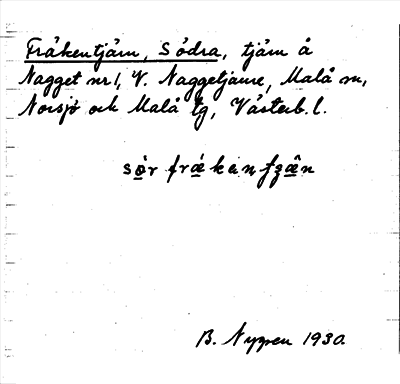 Fräkentjärn, Södra, tjärn å
Nagget nr 1, V. Naggetjaure, Malå sn,
Norsjö och Malå tg, Västerb. l.
sö̀r frǽken
B. Nygren 1930.